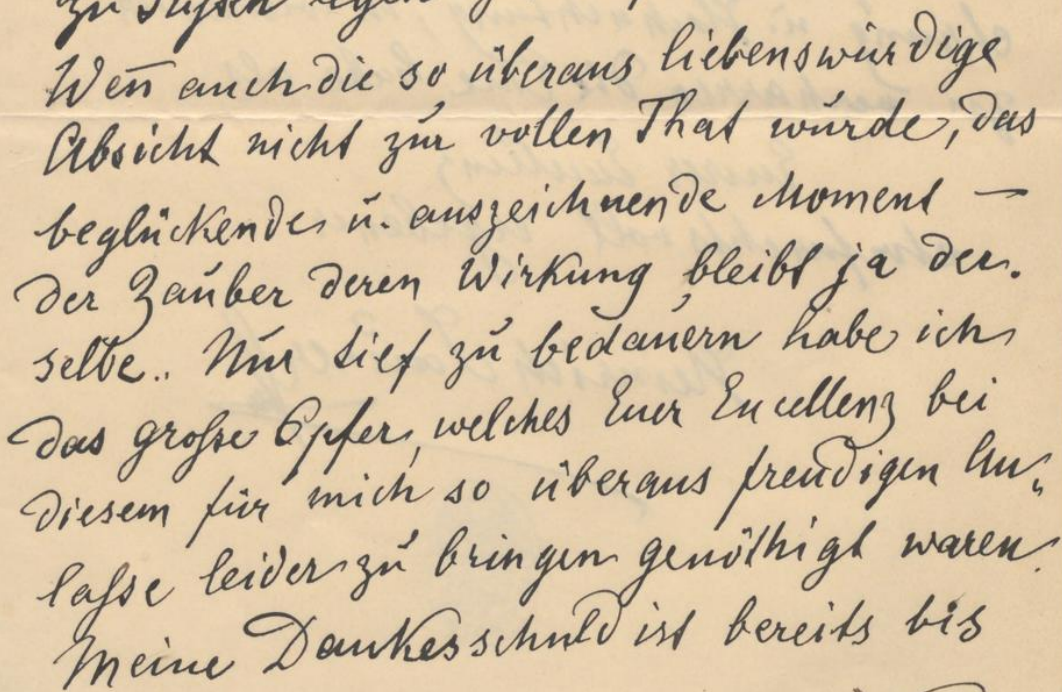 zu Füßen legen
Weñ auch die so überaus liebenswürdige
Absicht nicht zur vollen That wurde, das
beglückende u. auszeichnende Moment —
der Zauber deren Wirkung bleibt ja der.
selbe.. Nur tief zu bedauern habe ich
das große Opfer, welches Euer Excellenz bei
diesem für mich so überaus freudigen An„
laße leider zu bringen genöthigt waren.
Meine Dankesschuld ist bereits bis